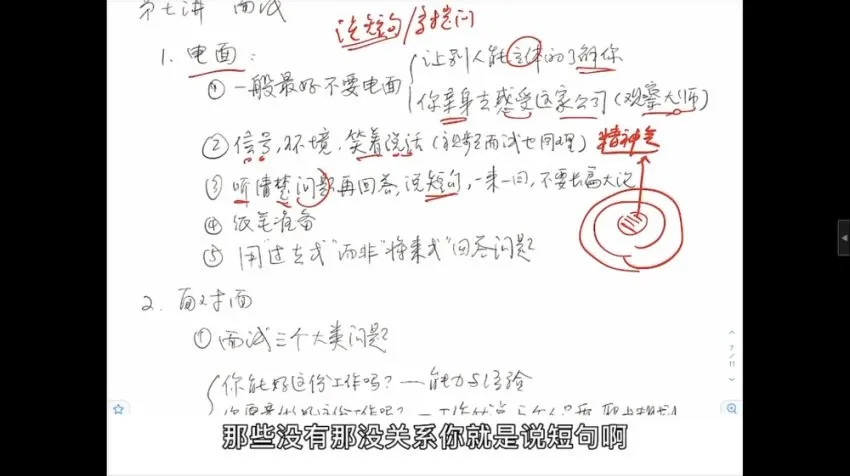 第七讲 面试
说短句/多提问
1. 电面:
① 一般最好不要电面
让别人能立体的了解你
你亲身去感受这家公司(观察大师)
② 信号,环境,笑着说话(视频面试也同理) 精神气
③ 听清楚问题再回答,说短句,一来一回,不要长篇大论
④ 纸笔准备
⑤ 用"过去式"而非"将来式"回答问题
2. 面对面
① 面试三个大类问题
你能好这份工作吗?——能力与经验
7/11
那些没有那没关系你就是说短句啊